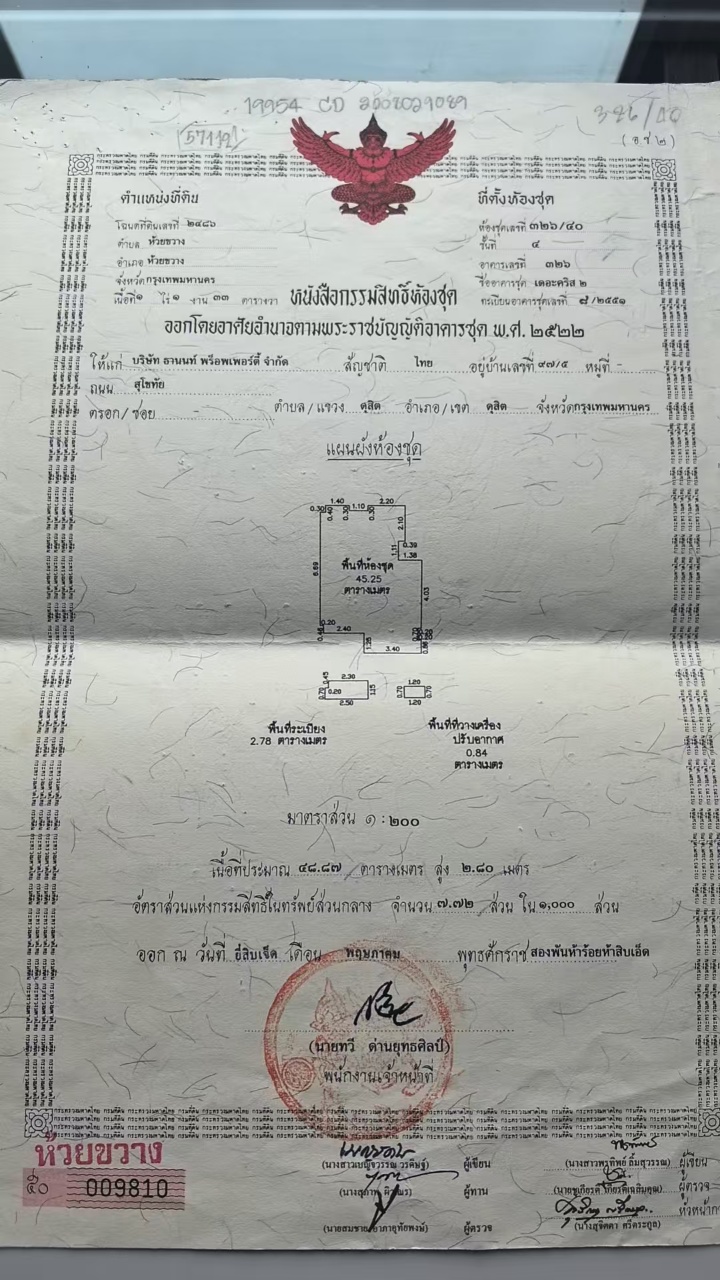 19954 CD
57112
๓๒๖/๔๐
(อ.ช.๒)
ตำแหน่งที่ดิน
ที่ตั้งห้องชุด
โฉนดที่ดินเลขที่ ๒๔๘๖
ห้องชุดเลขที่ ๓๒๖/๔๐
ตำบล ห้วยขวาง
ชั้นที่ ๔
อำเภอ ห้วยขวาง
อาคารเลขที่ ๓๒๖
จังหวัด กรุงเทพมหานคร
ชื่ออาคารชุด เดอะคริส ๒
เนื้อที่ ๑ ไร่ ๑ งาน ๓๓ ตารางวา
ทะเบียนอาคารชุดเลขที่ ๘/๒๕๕๑
หนังสือกรรมสิทธิ์ห้องชุด
ออกโดยอาศัยอำนาจตามพระราชบัญญัติอาคารชุด พ.ศ. ๒๕๒๒
ให้แก่ บริษัท ธานนท์ พร็อพเพอร์ตี้ จำกัด สัญชาติ ไทย อยู่บ้านเลขที่ ๙๗/๕ หมู่ที่ -
ถนน สุโขทัย
ตรอก/ซอย - ตำบล/แขวง ดุสิต อำเภอ/เขต ดุสิต จังหวัด กรุงเทพมหานคร
แผนผังห้องชุด
1.40 2.20
0.30 0.40 0.30 1.10 0.30
2.10
1.11 0.39
1.38
พื้นที่ห้องชุด
45.25
ตารางเมตร
6.69
4.03
0.20
2.40
1.28
3.40
0.45 2.30
0.70 0.20 1.15
2.50
1.20
0.70 0.70
1.20
พื้นที่ระเบียง
2.78 ตารางเมตร
พื้นที่วางเครื่อง
ปรับอากาศ
0.84
ตารางเมตร
มาตราส่วน ๑ : ๒๐๐
เนื้อที่ประมาณ ๔๘.๘๗ ตารางเมตร สูง ๒.๘๐ เมตร
อัตราส่วนแห่งกรรมสิทธิ์ในทรัพย์ส่วนกลาง จำนวน ๗.๗๒ ส่วน ใน ๑,๐๐๐ ส่วน
ออก ณ วันที่ ยี่สิบเจ็ด เดือน พฤษภาคม พุทธศักราช สองพันห้าร้อยห้าสิบเอ็ด
(นายทวี ด่านยุทธศิลป์)
พนักงานเจ้าหน้าที่
ห้วยขวาง
009810
(นางสาวเบญจวรรณ วรดิษฐ์) ผู้เขียน
(นางสุภาพ) ผู้ทาน
ผู้ตรวจ
(นางสาวพรทิพย์ ลิ้มสุวรรณ) ผู้เขียน
ผู้ตรวจ
(นางสุจิตตา ศรีตระกูล)